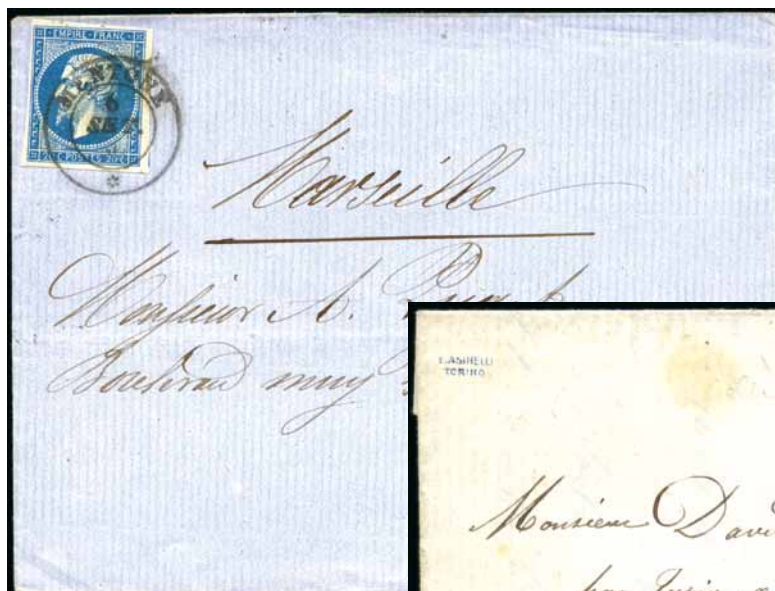 EMPIRE FRANC
MENTONE
6
20 C POSTES 20 C
Marseille
Monsieur A.
Boulevard muy
E. ASINELLI
TORINO
Monsieur Davi